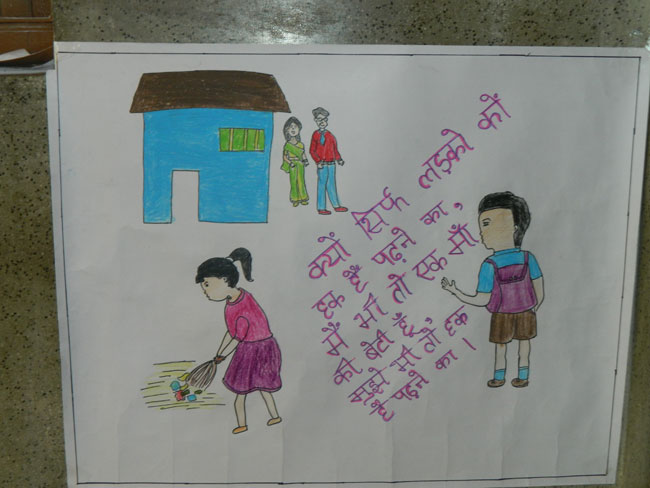 क्यों सिर्फ लड़को कों
हक हैं पढ़ने का
मैं भी तो एक माँ,
की बेटी हूँ
मुझे भी तो, हक
हैं पढ़ने का।